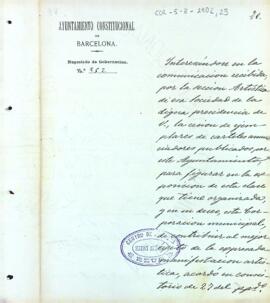 COR-5-2-1902, 23
AYUNTAMIENTO CONSTITUCIONAL
DE
BARCELONA.
Negociado de Gobernacion.
Nº 352
Interesándose en la
comunicacion recibida
por la Seccion Artística
de esa Sociedad de la
digna presidencia de
V., la cesion de ejem-
plares de carteles anun-
ciadores publicados por
este Ayuntamiento,
para figurar en la ex-
posicion de esta clase
que tiene organizada,
y en su deseo, esta Cor-
poracion municipal,
de contribuir al mejor
de la expresada
manifestacion artís-
tica, acordó en consis-
torio de 27 del
CENTRO DE
REUS